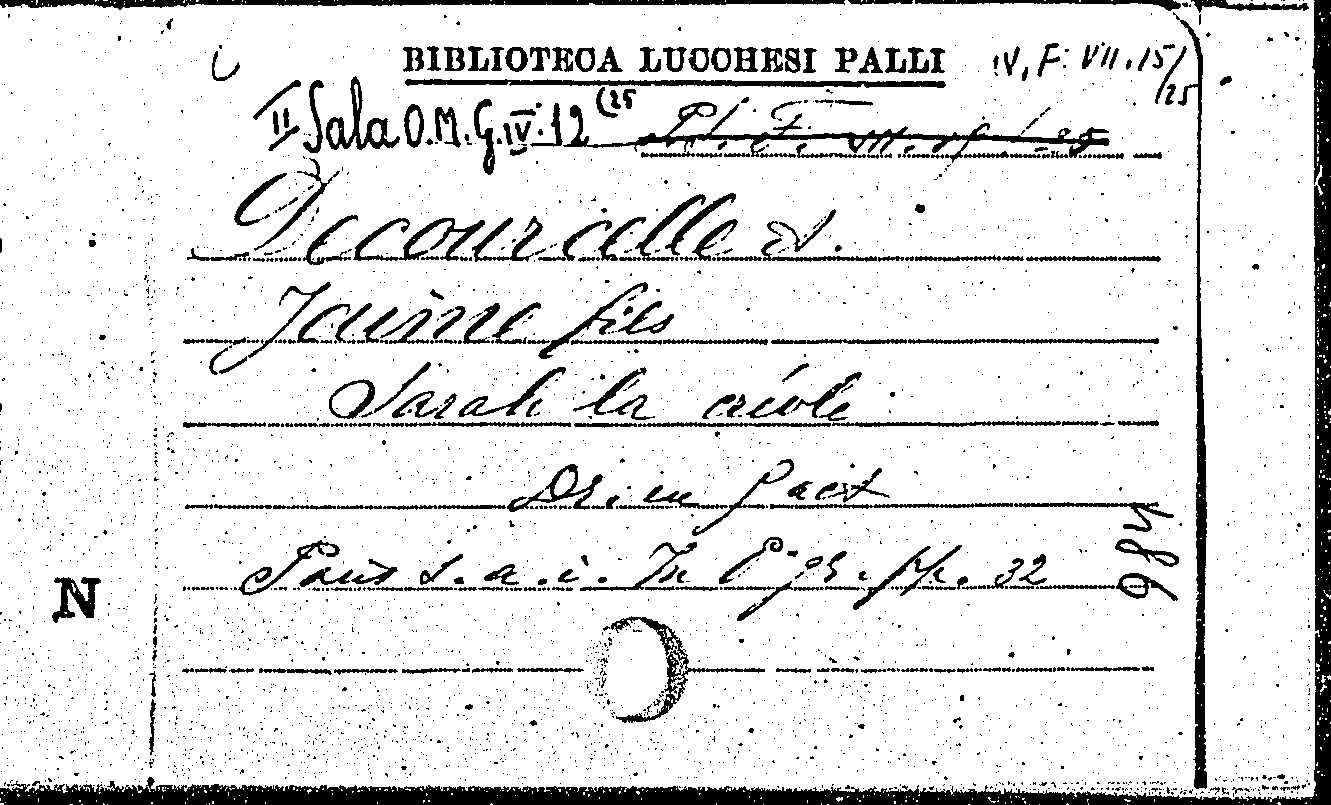 BIBLIOTECA LUCCHESI PALLI
IV, F. VII. 15/25
II Sala O.M.G.IV.12 (25
Decourcelle A.
Jaime fils
Sarah la créole
Dr. en 5 act
Paris s. a. i. In 8° gr. pp. 32
984
N